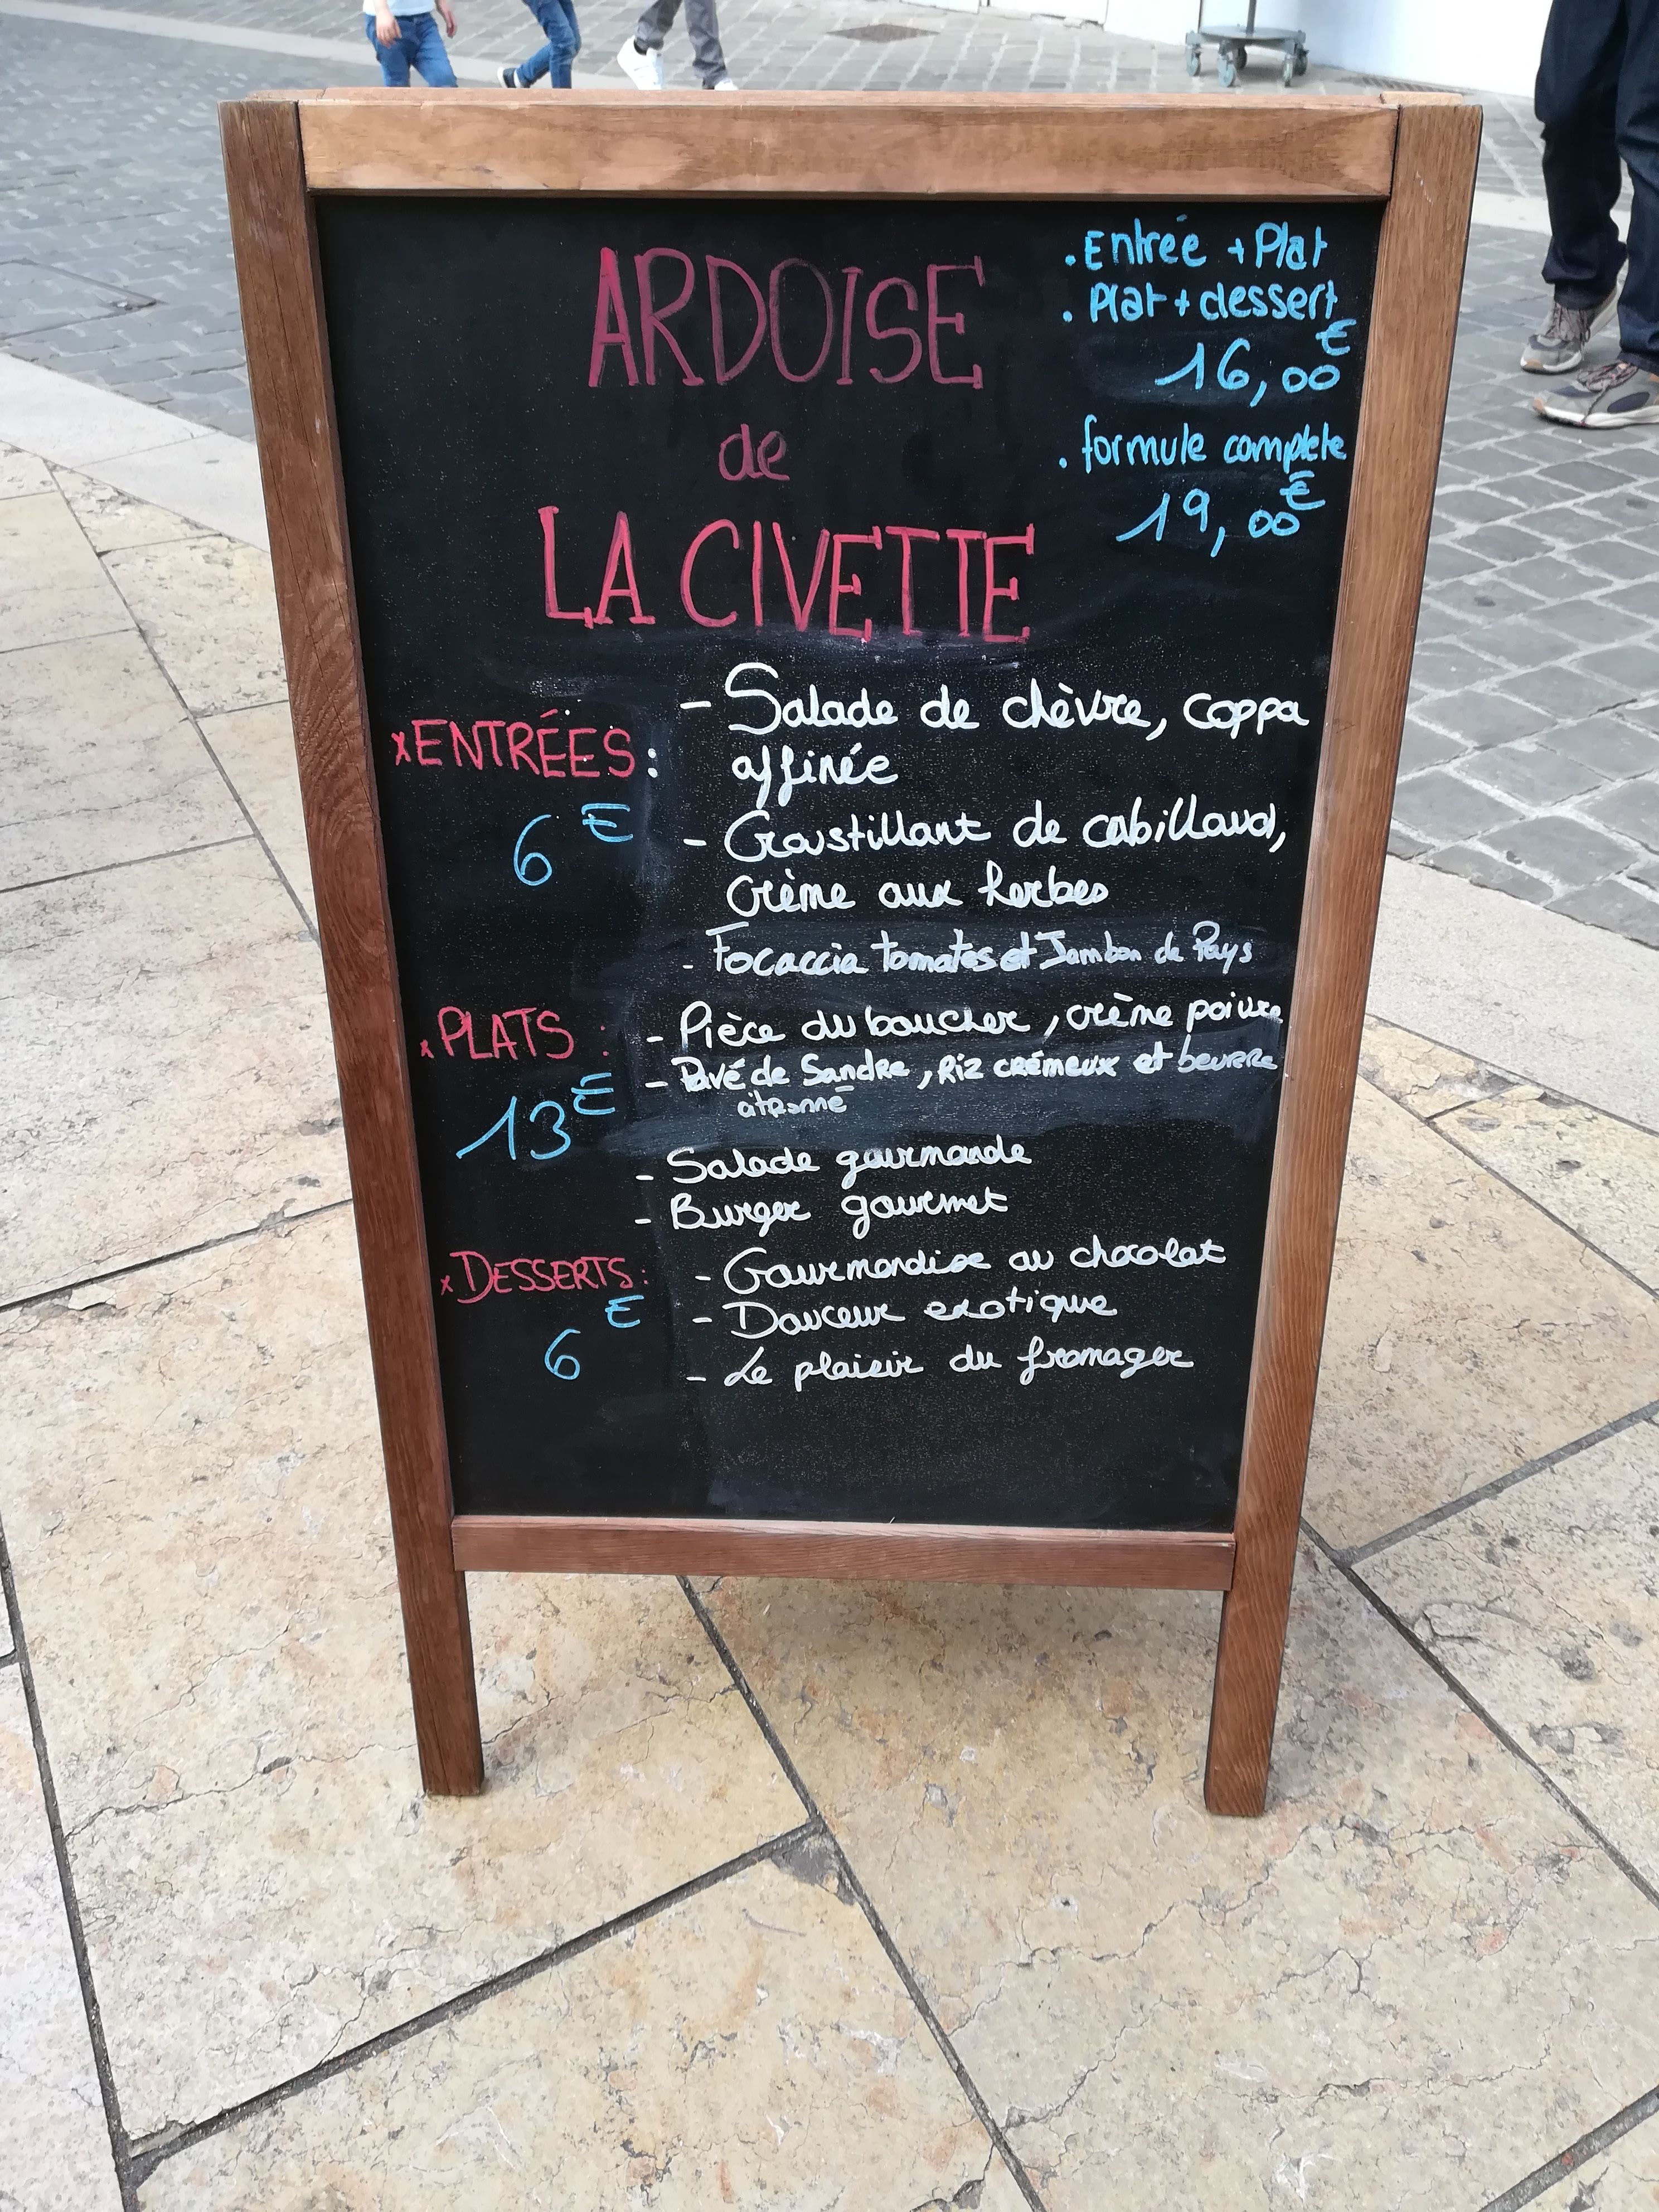 ARDOISE
de
LA CIVETTE
. Entrée + Plat
. Plat + dessert
16,00€
. formule complete
19,00€
x ENTRÉES :
6€
- Salade de chèvre, coppa
affinée
- Croustillant de cabillaud,
crème aux herbes
- Focaccia tomates et Jambon de Pays
x PLATS :
13€
- Pièce du boucher, crème poivre
- Pavé de Sandre, Riz crémeux et beurre
citronné
- Salade gourmande
- Burger gourmet
x DESSERTS :
6€
- Gourmandise au chocolat
- Douceur exotique
- Le plaisir du fromager